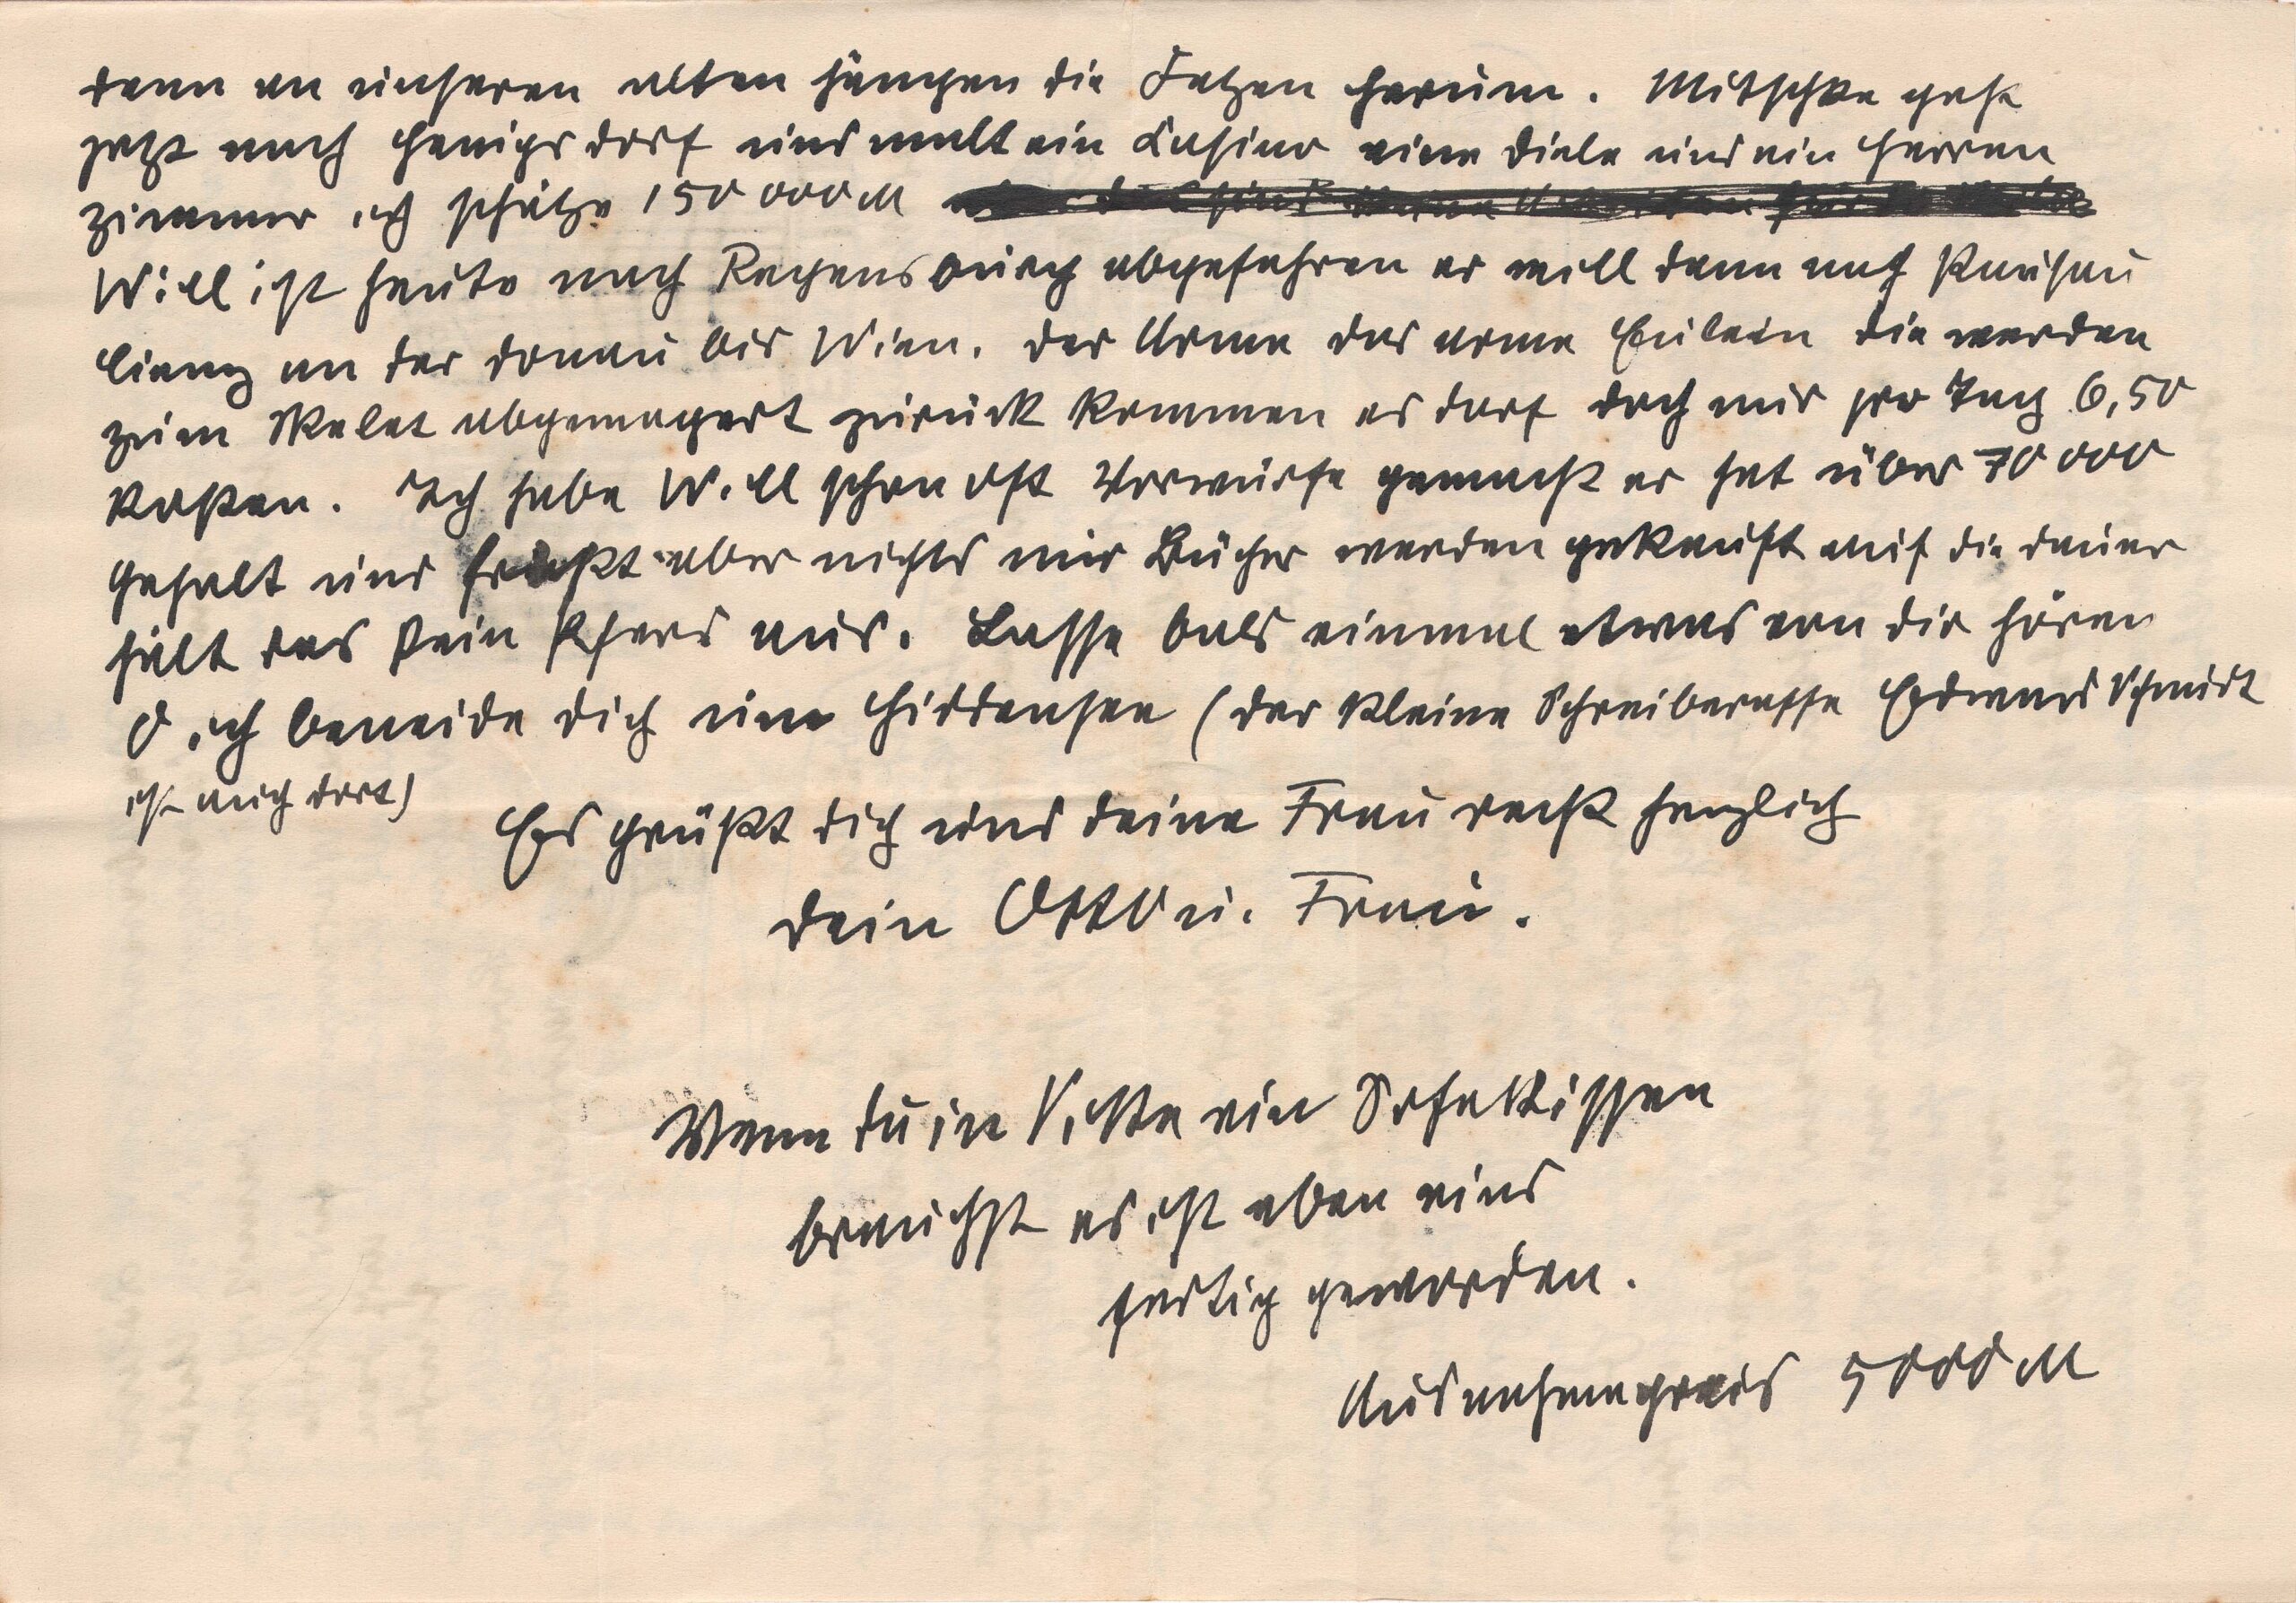 denn an unseren alten hängen die Fetzen herum. Mitschke geht
jetzt nach Henigsdorf und malt ein Casino eine Diele und ein Herren
zimmer ich schätze 150 000 M
Will ist heute nach Regensburg abgefahren er will dann auf
an der Donau bis Wien. Der Arme das arme Eulein die werden
zum Skelet abgemagert zurück kommen es darf doch nur pro Tag 6,50
kosten. Ich habe Will schon oft Vorwürfe gemacht er hat über 70 000
Gehalt und frißt aber nichts nur Bücher werden gekauft auf die dauer
hält das kein Pferd aus. Lasse bald einmal etwas von dir hören
O ich beneide dich um Hiddensee (der kleine Schreiberaffe Edmund Schmidt
ist auch dort)
Es grüßt dich und deine Frau recht herzlich
dein Otto u. Frau.
Wenn du in Vitte ein Sofakissen
brauchst es ist eben eins
fertig geworden.
Ausnahmepreis 5000 M